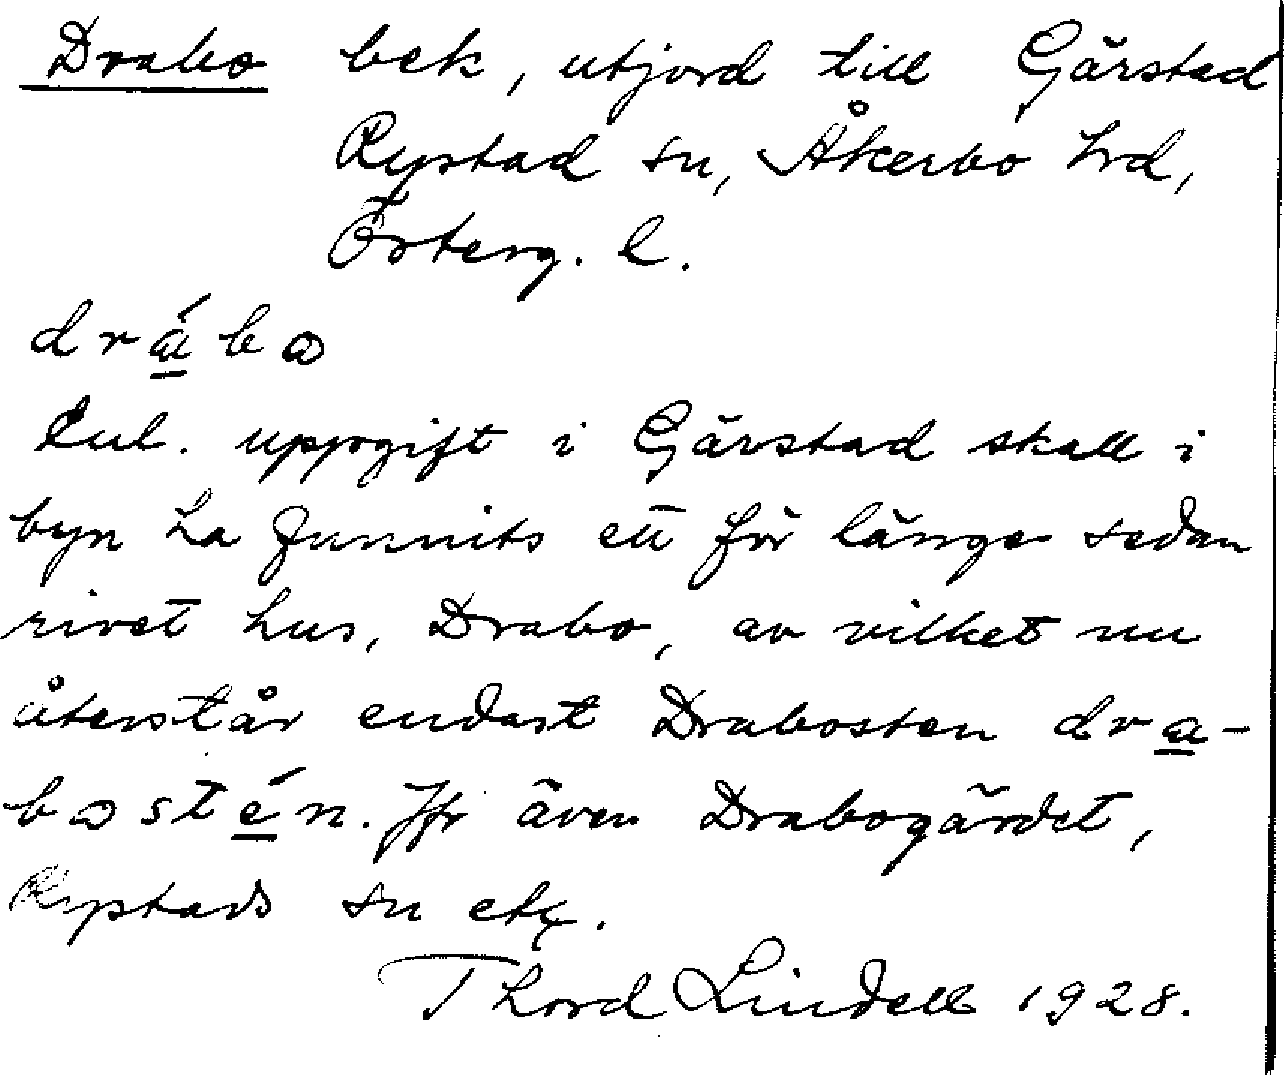 Drabo bek, utjord till Gärstad
Rystad sn, Åkerbo hd,
Österg. l.
drába
Enl. uppgift i Gärstad skall i
byn ha funnits ett för länge sedan
rivet hus, Drabo, av vilket nu
återstår endast Drabosten dra-
bastén. Jfr även Drabogärdet,
Rystads sn etc.
Thord Lindell 1928.